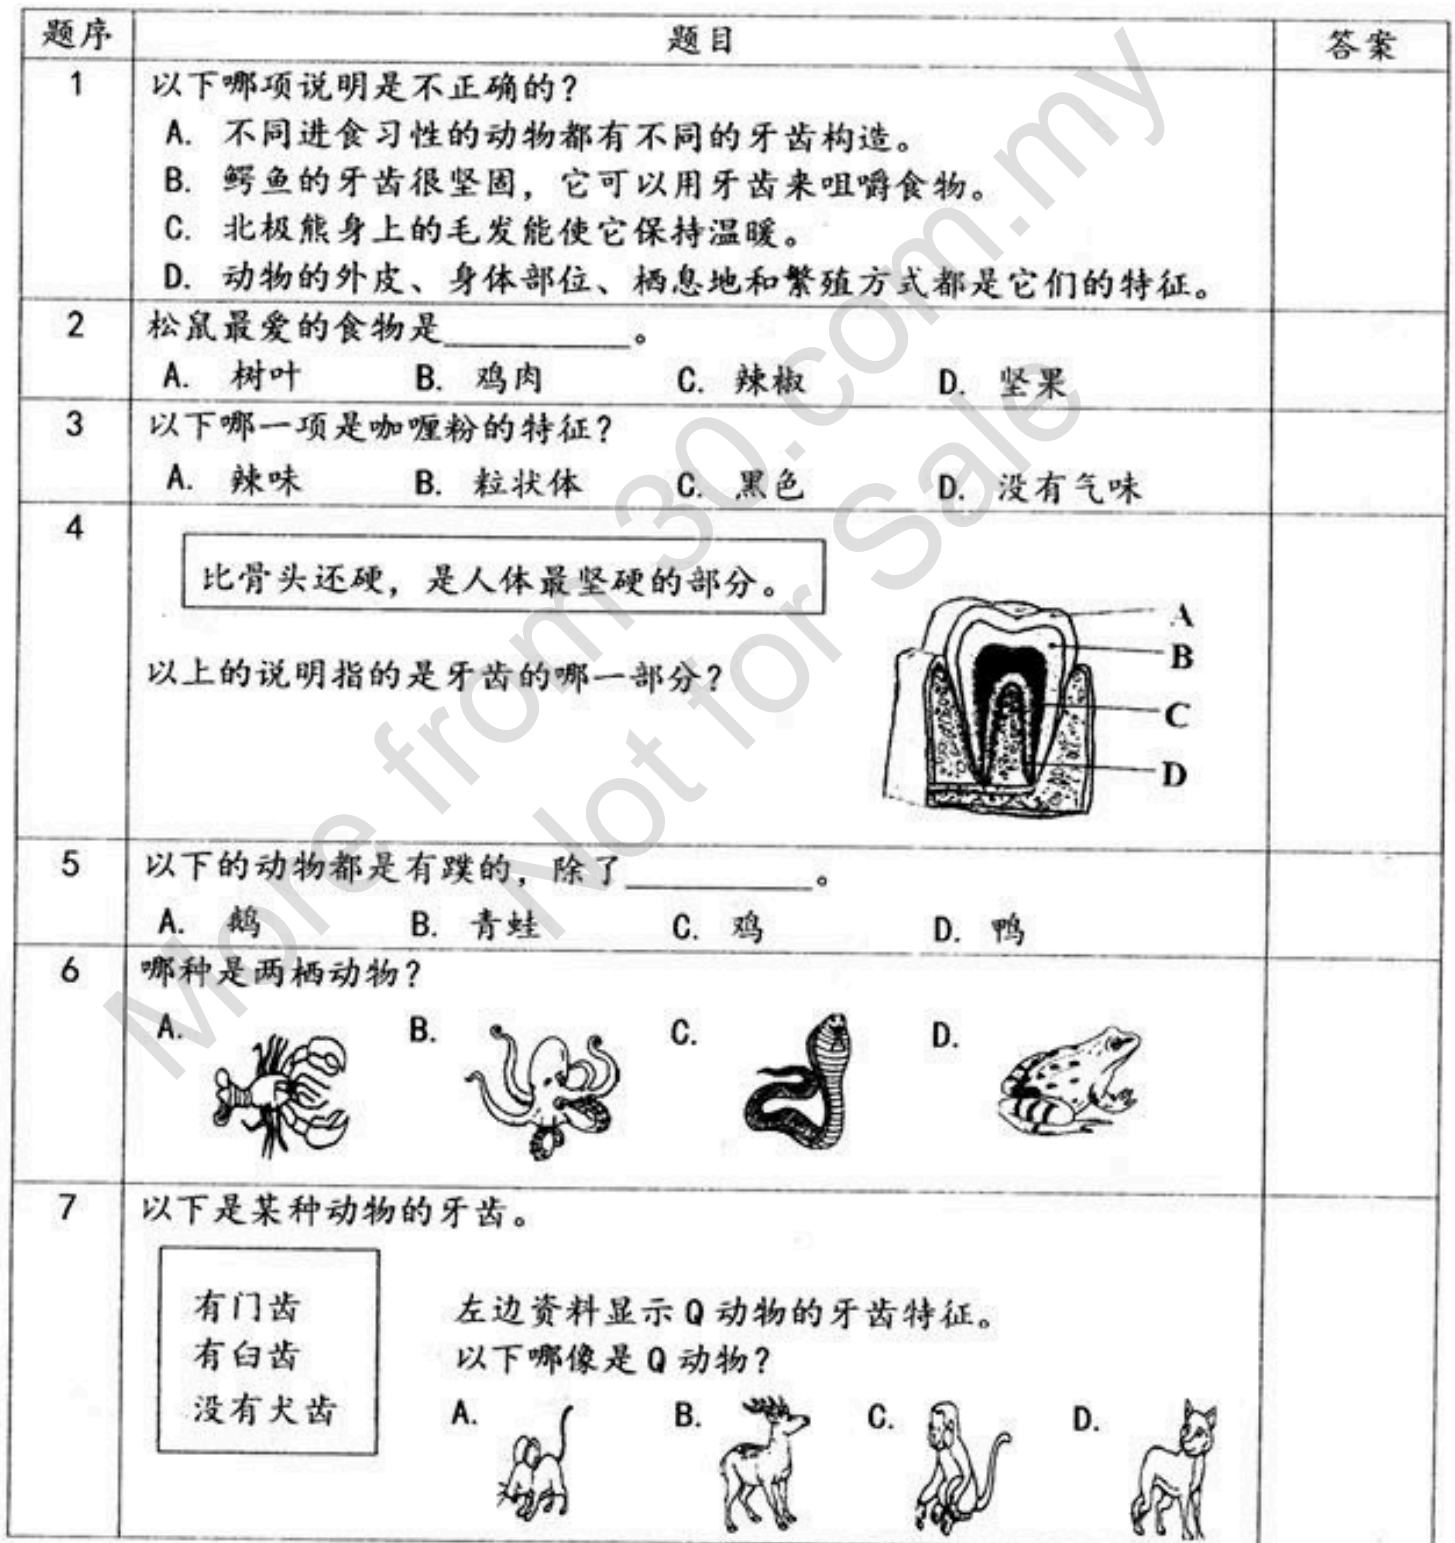 题序 题目 答案
1 以下哪项说明是不正确的？
A. 不同进食习性的动物都有不同的牙齿构造。
B. 鳄鱼的牙齿很坚固，它可以用牙齿来咀嚼食物。
C. 北极熊身上的毛发能使它保持温暖。
D. 动物的外皮、身体部位、栖息地和繁殖方式都是它们的特征。
2 松鼠最爱的食物是__________。
A. 树叶 B. 鸡肉 C. 辣椒 D. 坚果
3 以下哪一项是咖喱粉的特征？
A. 辣味 B. 粒状体 C. 黑色 D. 没有气味
4
比骨头还硬，是人体最坚硬的部分。
以上的说明指的是牙齿的哪一部分？
A
B
C
D
5 以下的动物都是有蹼的，除了__________。
A. 鹅 B. 青蛙 C. 鸡 D. 鸭
6 哪种是两栖动物？
A. B. C. D.
7 以下是某种动物的牙齿。
有门齿
有臼齿
没有犬齿
左边资料显示 Q 动物的牙齿特征。
以下哪像是 Q 动物？
A. B. C. D.
More from 30.com.my
Not for Sale